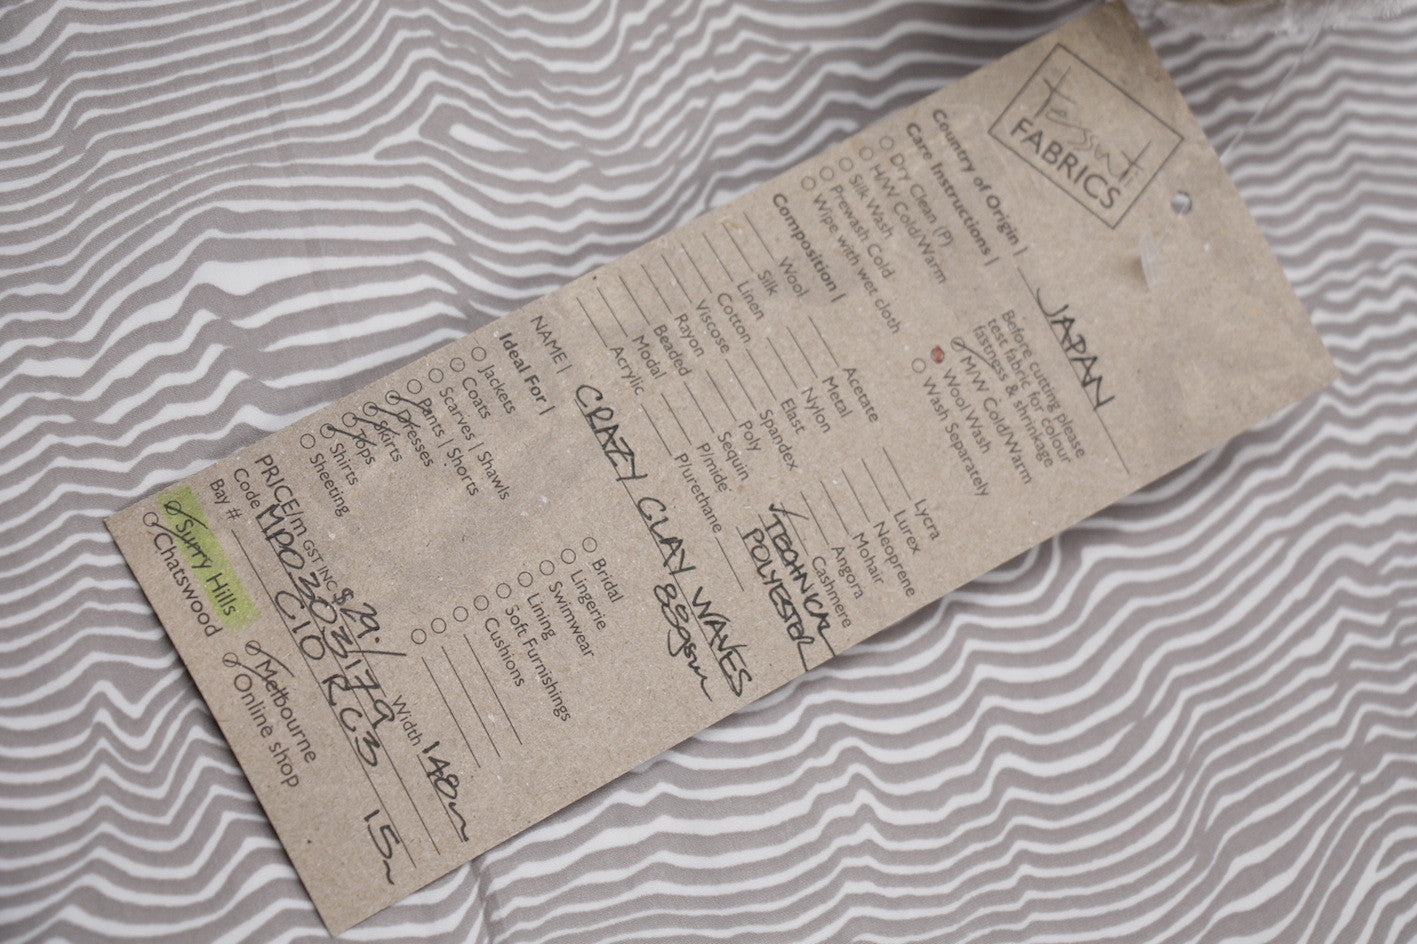 tessuti
FABRICS
Country of Origin | JAPAN
Care Instructions |
Before cutting please
test fabric for colour
fastness & shrinkage
Dry Clean (P)
H/W Cold/Warm
Silk Wash
Prewash Cold
Wipe with wet cloth
M/W Cold/Warm
Wool Wash
Wash Separately
Composition |
Wool
Silk
Linen
Cotton
Viscose
Rayon
Beaded
Modal
Acrylic
Acetate
Metal
Nylon
Elast
Spandex
Poly
Sequin
P/mide
P/urethane
Lycra
Lurex
Neoprene
Mohair
Angora
Cashmere
TECHNICAL
POLYESTER
NAME | CRAZY CLAY WAVES
88gsm
Ideal For |
Jackets
Coats
Scarves | Shawls
Pants | Shorts
Dresses
Skirts
Tops
Shirts
Sheeting
Bridal
Lingerie
Swimwear
Lining
Soft Furnishings
Cushions
PRICE/m GST INC $29./ Width 148
Code MPO303179
Bay # C10 RC3 15
Surry Hills
Chatswood
Melbourne
Online shop